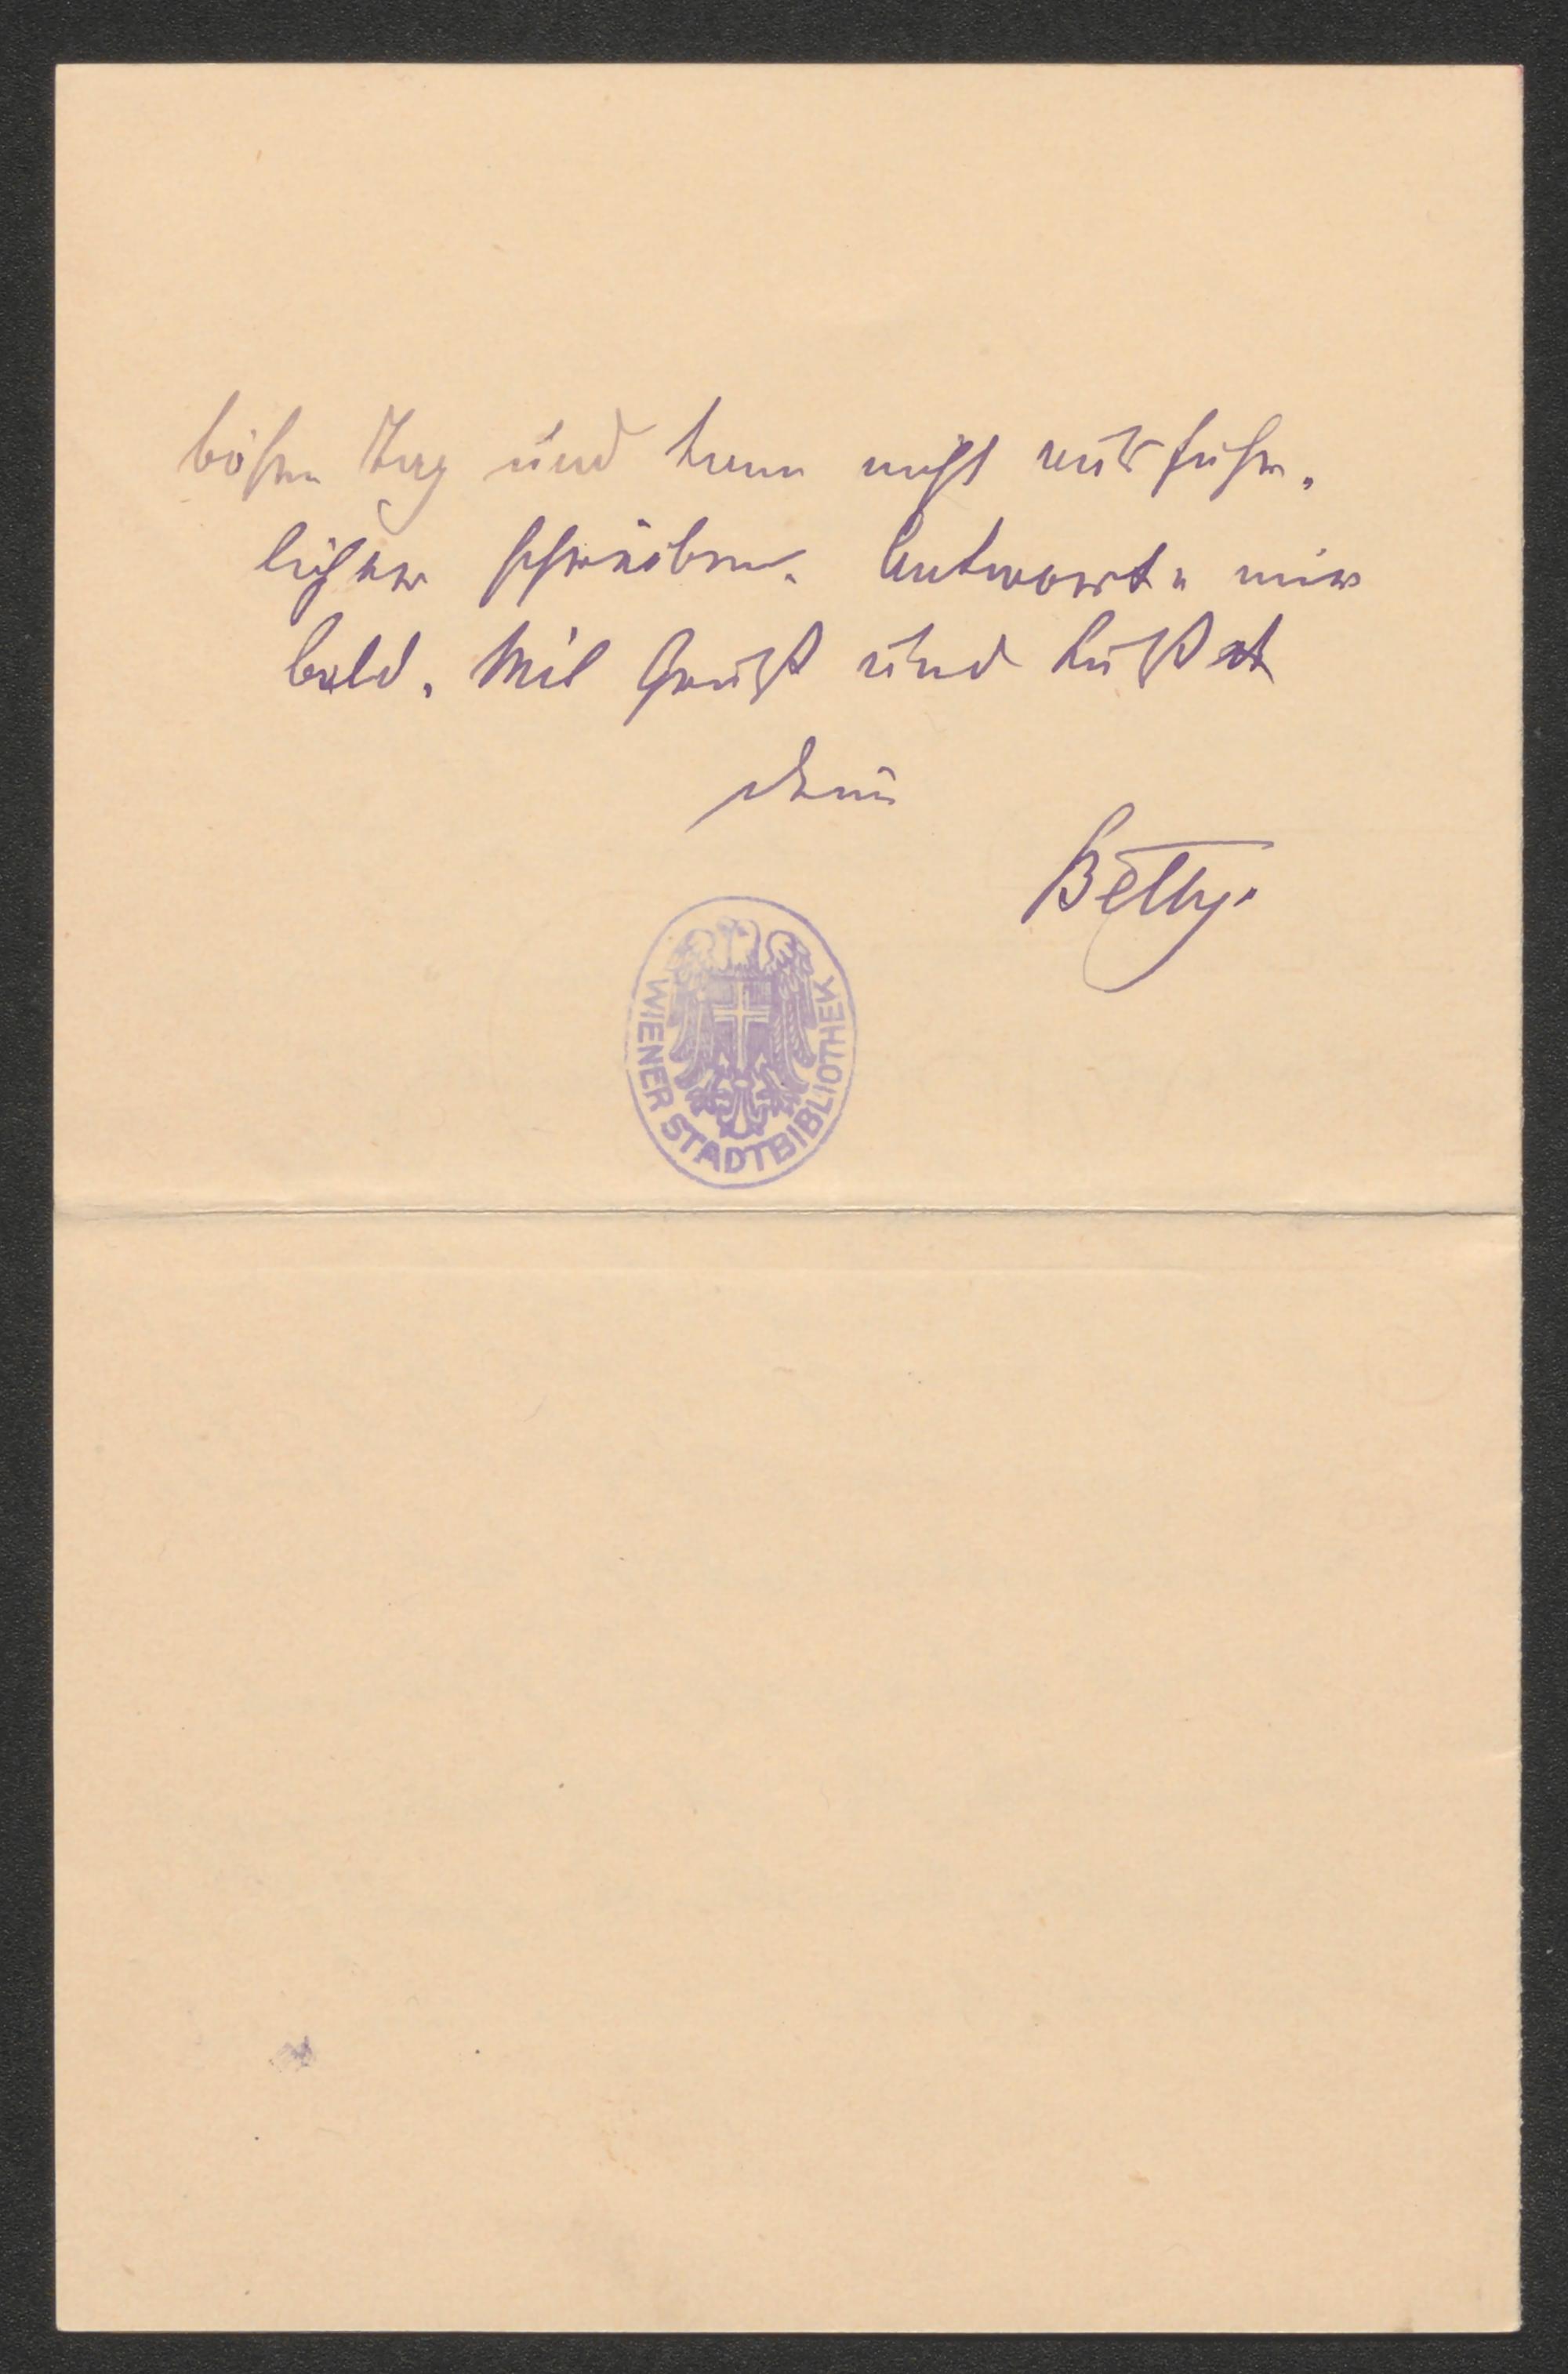 bösen Tag und kann nicht ausführ-
licher schreiben. Antworte mir
bald. Mit Gruß und Kuß
Deine
Betty.
WIENER STADTBIBLIOTHEK